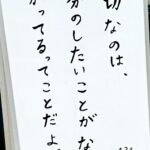 切なのは、
分のしたいことが な
かってるってことだよ。